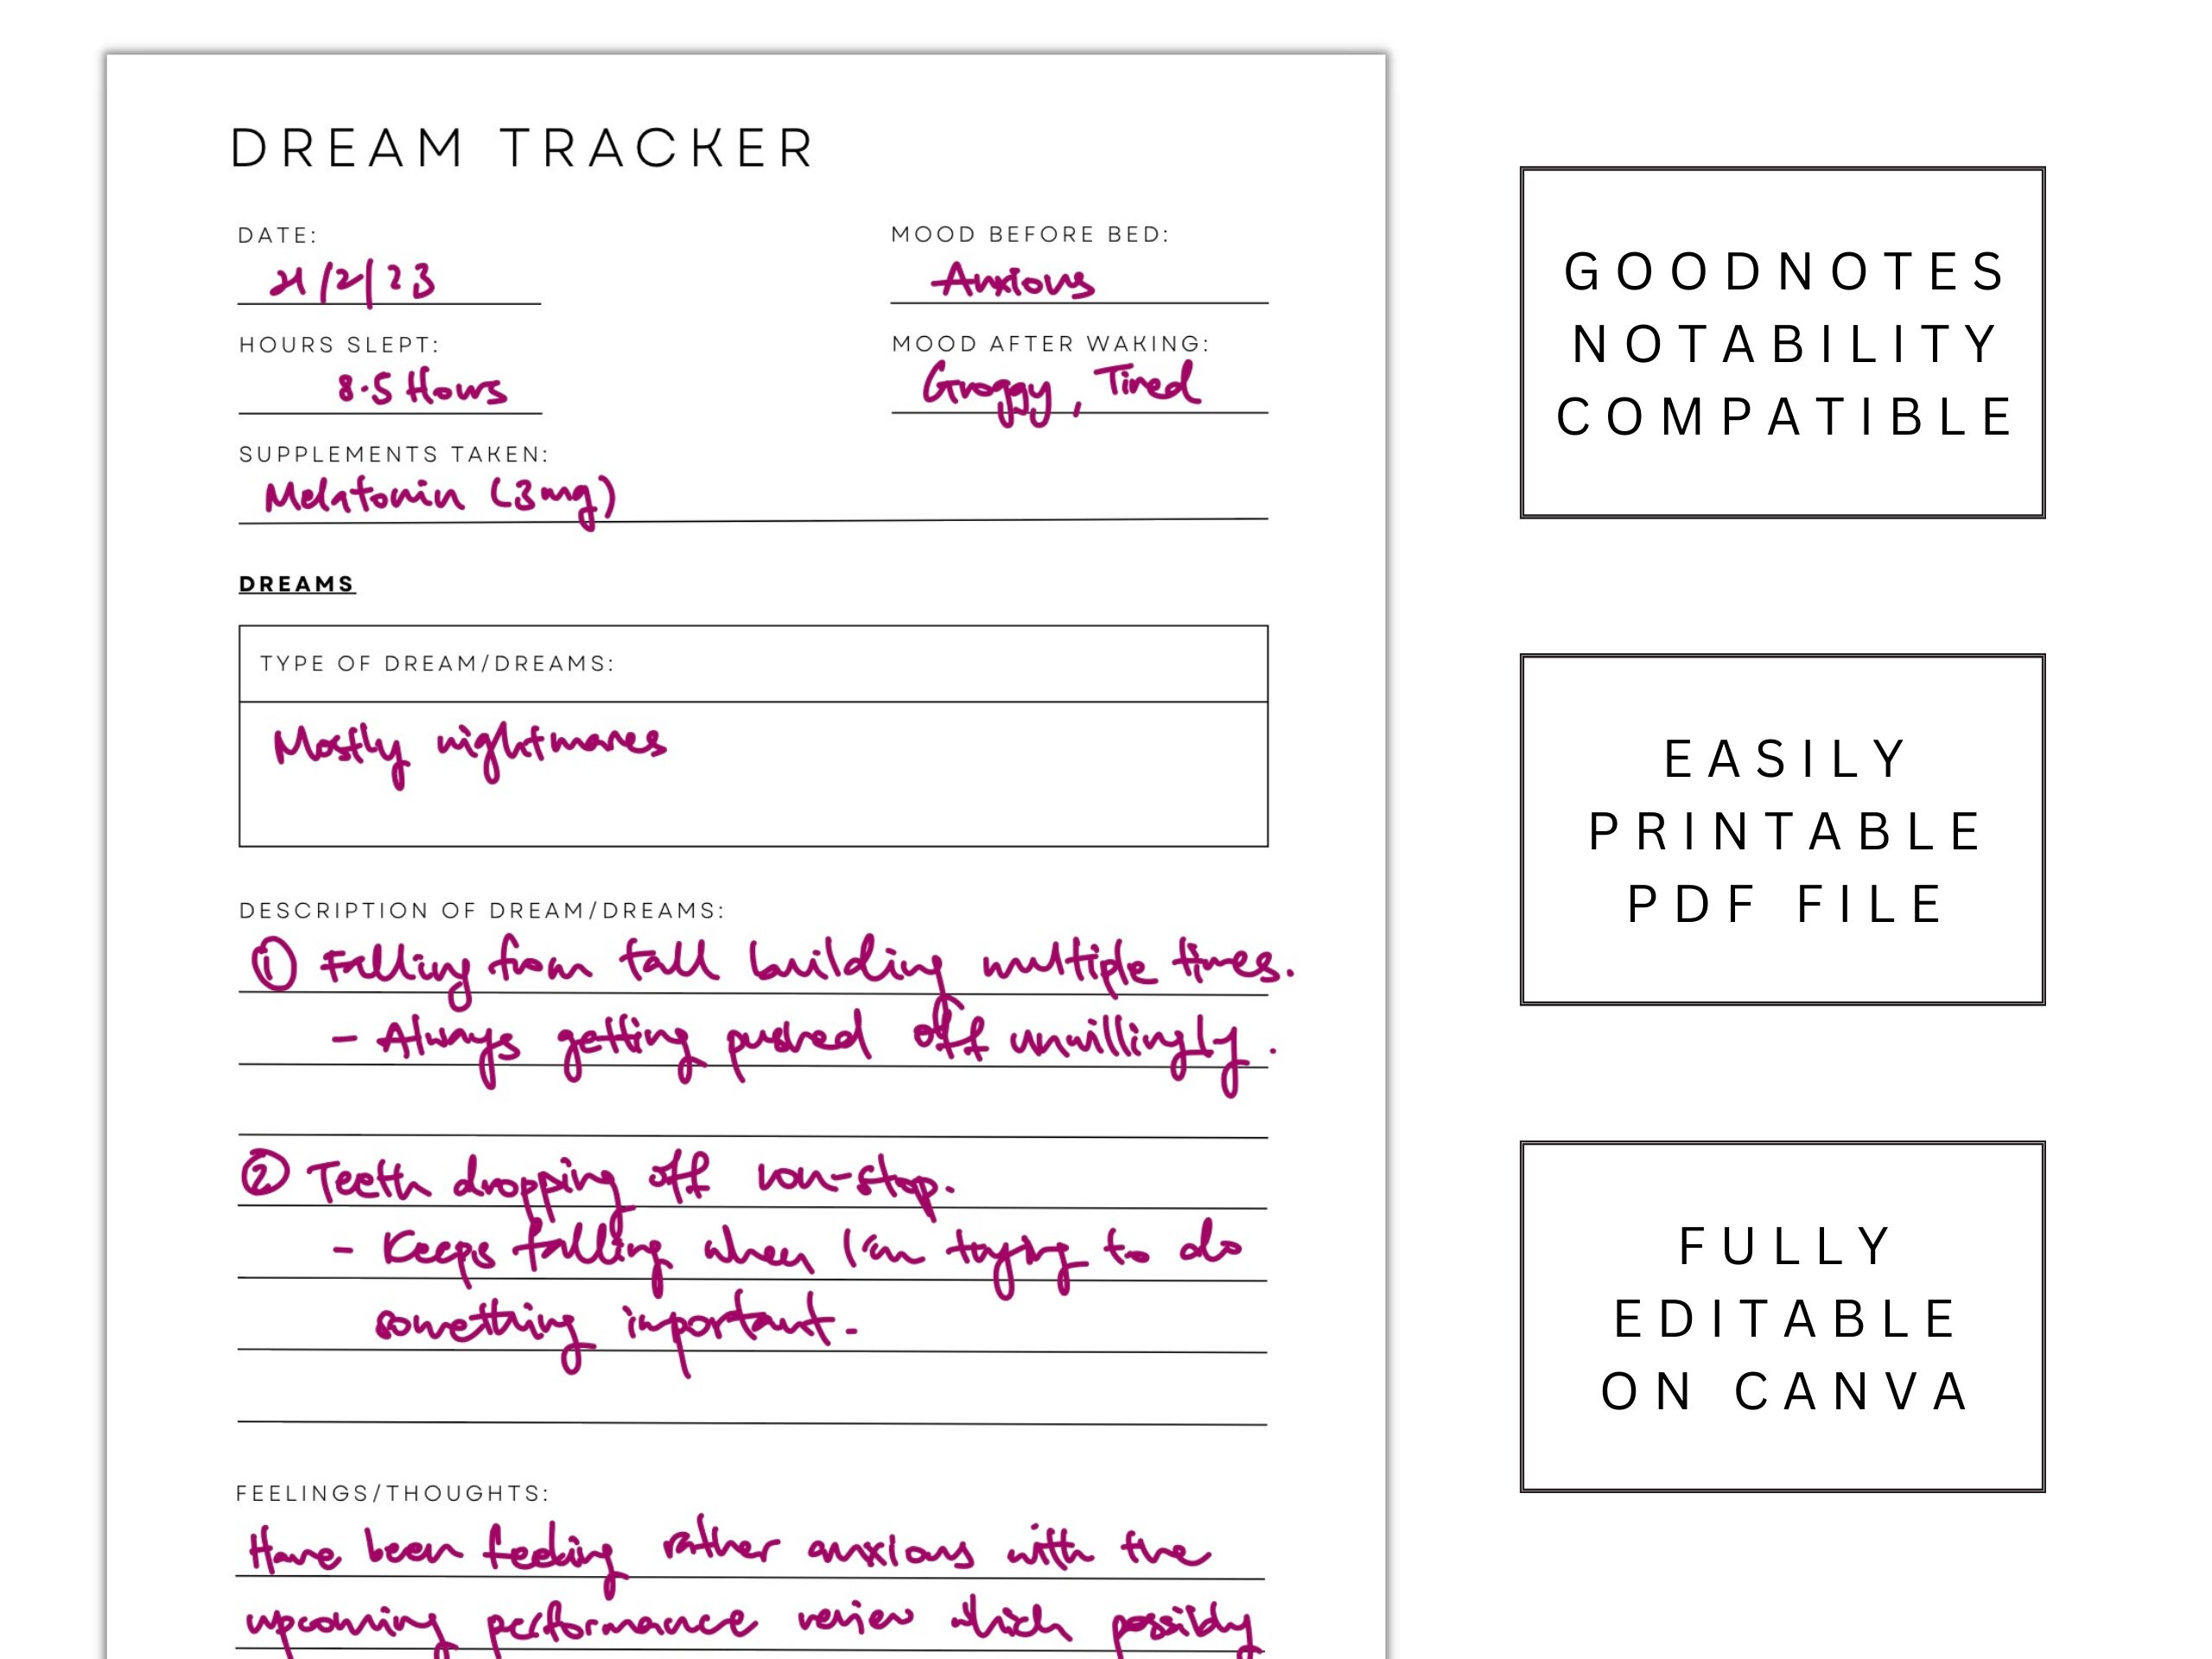 DREAM TRACKER
DATE:
21/2/23
MOOD BEFORE BED:
Anxious
HOURS SLEPT:
8.5 Hours
MOOD AFTER WAKING:
Groggy, Tired
SUPPLEMENTS TAKEN:
Melatonin (3mg)
DREAMS
TYPE OF DREAM/DREAMS:
Mostly nightmares
DESCRIPTION OF DREAM/DREAMS:
① Falling from tall building multiple times.
- Always getting pushed off unwillingly.
② Teeth dropping off non-stop.
- Keeps falling when I'm trying to do
something important.
FEELINGS/THOUGHTS:
Have been feeling rather anxious with the
upcoming performance review which possibly
GOODNOTES
NOTABILITY
COMPATIBLE
EASILY
PRINTABLE
PDF FILE
FULLY
EDITABLE
ON CANVA